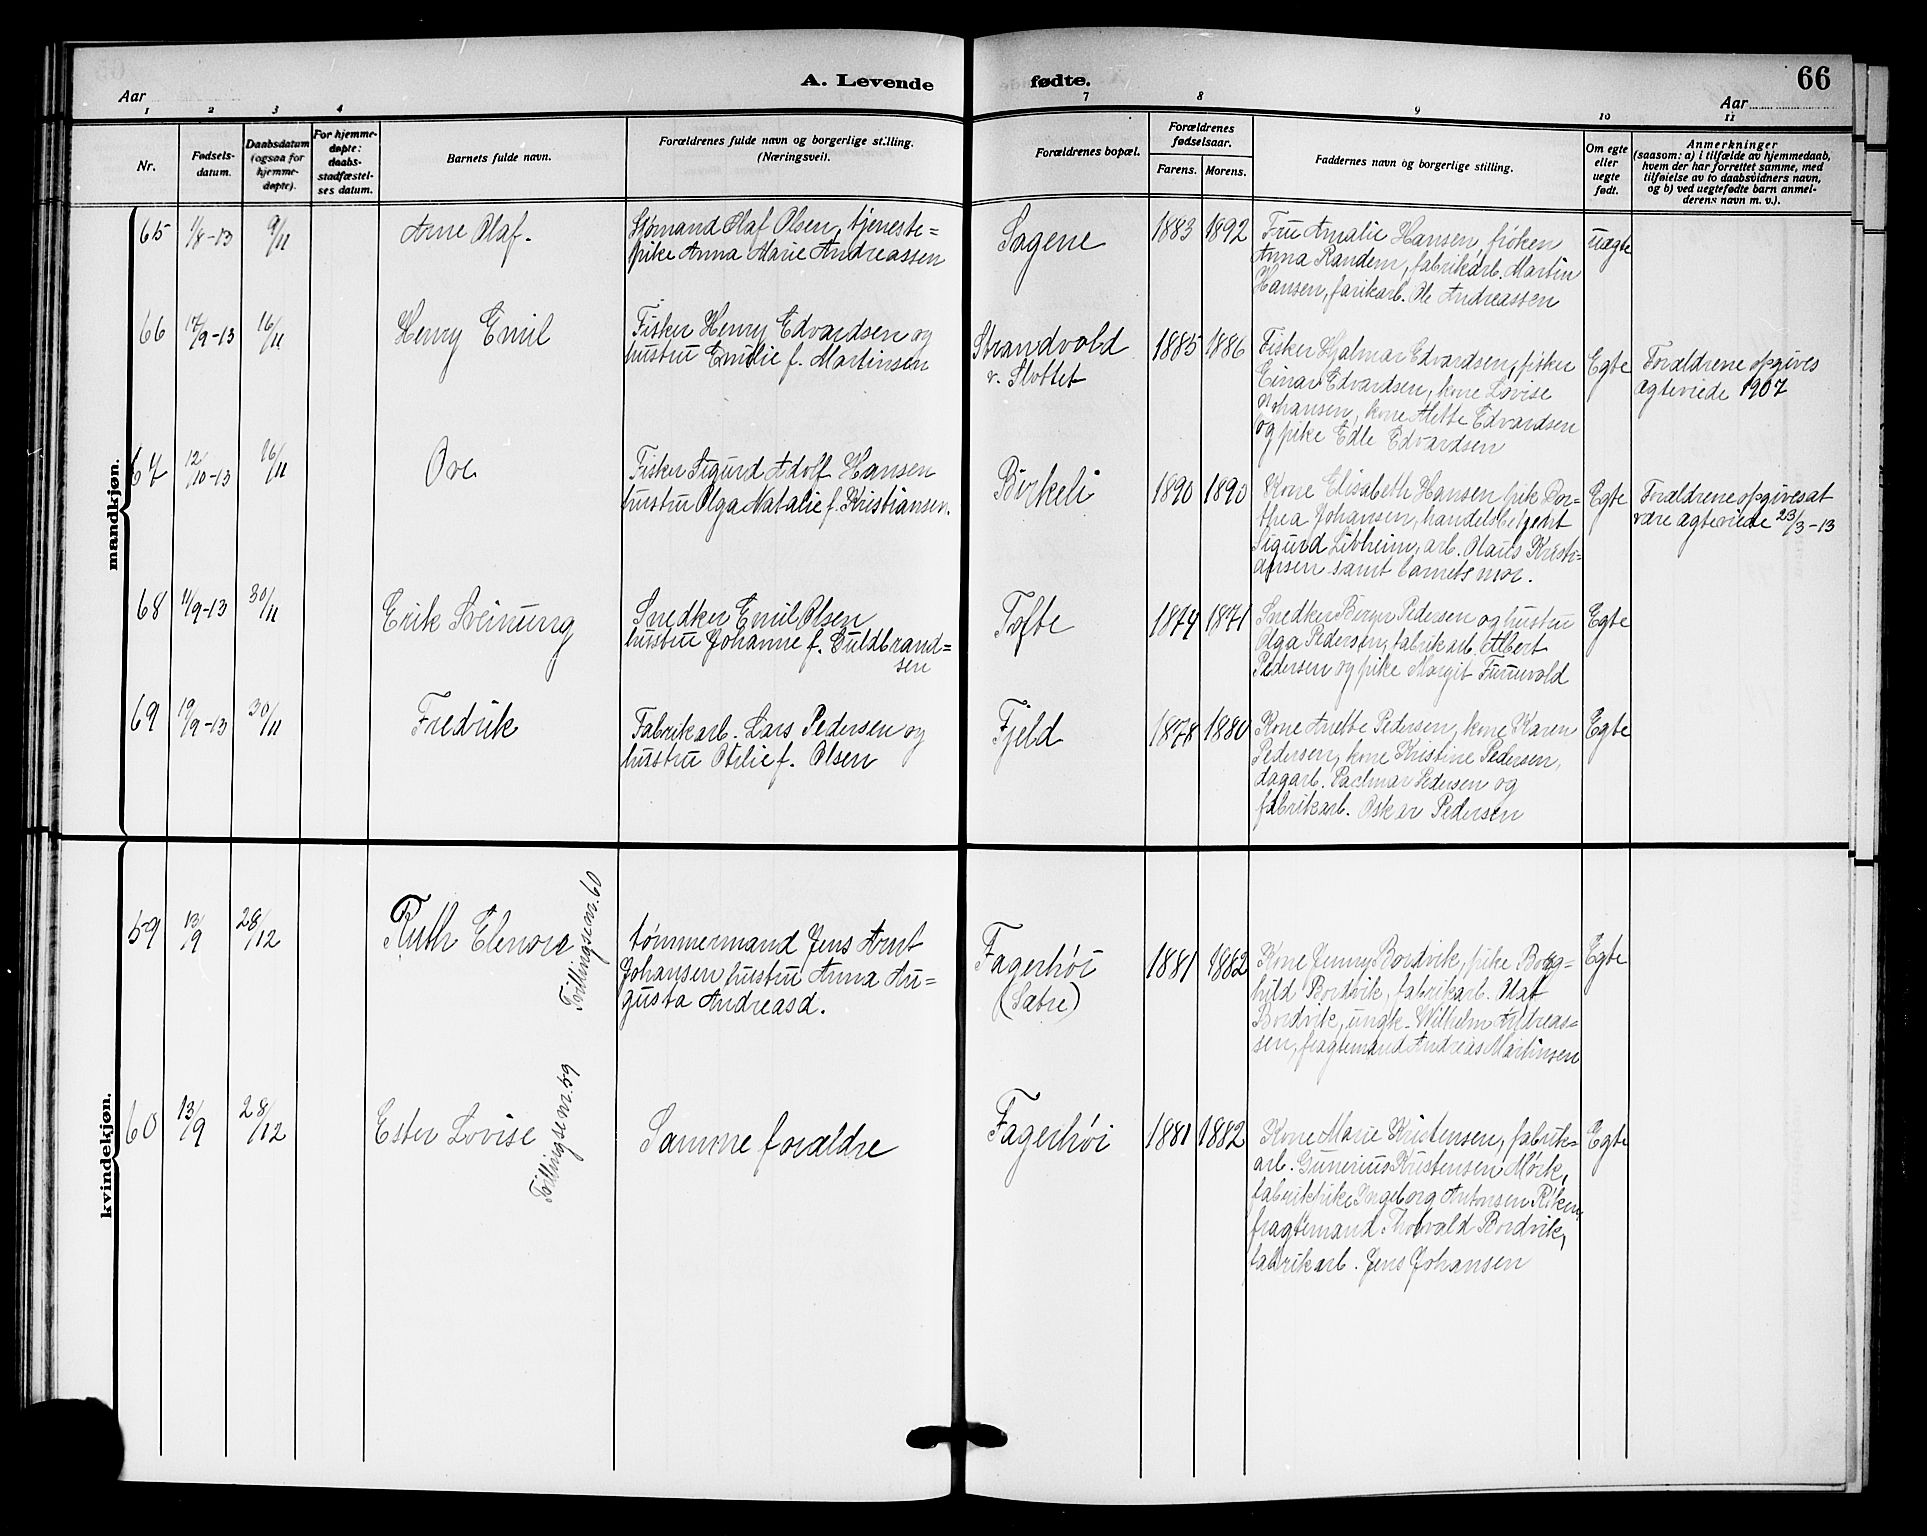 A. Levende fødte.
66
Aar
Aar
1 2 3 4 7 8 9 10 11
Nr.
Fødsels-
datum.
Daabsdatum
(ogsaa for
hjemme-
døpte).
For hjemme-
døpte:
daabs-
stadfæstel-
ses datum.
Barnets fulde navn.
Forældrenes fulde navn og borgerlige stilling.
(Næringsvei).
Forældrenes bopæl.
Forældrenes
fødselsaar.
Farens. Morens.
Faddernes navn og borgerlige stilling.
Om egte
eller
uegte
født.
Anmerkninger
(saasom: a) i tilfælde av hjemmedaab,
hvem der har forrettet samme, med
tilføielse av to daabsvidners navn,
og b) ved uegtefødte barn anmel-
derens navn m. v.).
mandkjøn.
65 1/8-13 9/11 Arne Olaf.
Sjømand Olaf Olsen, tjeneste=
pike Anna Marie Andreassen
Sagene 1883 1892
Fru Amalie Hansen, frøken
Anna Randem, fabrikarb. Martin
Hansen, farikarb. Ole Andreassen
uegte
66 17/9-13 16/11 Henry Emil
Fisker Henry Edvardsen og
hustru Emilie f. Martinsen
Strandvold
v. Slottet
1885 1886
Fisker Hjalmar Edvardsen, fisker
Einar Edvardsen, kone Lovise
Johansen, kone Alette Edvardsen
og pike Edle Edvardsen
Egte
Forældrene opgives
ægteviede 1907
67 12/10-13 16/11 Ove
Fisker Sigurd Adolf Hansen
hustru Olga Natalie f. Kristiansen.
Birkeli 1890 1890
Kone Elisabeth Hansen, pike Dor-
thea Johansen, handelsbetjent
Sigurd Libheim, arb. Olaus Kristi=
ansen samt barnets mor.
Egte
Forældrene opgives at
være ægteviede 23/3-13
68 11/9-13 30/11 Erik Sveinung
Snedker Emil Olsen
hustru Johanne f. Guldbrand=
sen
Tofte 1874 1871
Snedker Birger Pedersen og hustru
Olga Pedersen, fabrikarb. Albert
Pedersen og pike Margit Furuvold
Egte
69 19/9-13 30/11 Fredrik
Fabrikarb. Lars Pedersen og
hustru Otilie f. Olsen
Fjeld 1878 1880
Kone Anette Pedersen, kone Karen
Pedersen, kone Kristine Pedersen,
dagarb. Pedersen og
fabrikarb. Oskar Pedersen
Egte
kvindekjøn.
59 13/9 28/12 Ruth Elenora
Tvillingsem. 60
tømmermand Jens Arnt
Johansen hustru Anna Au=
gusta Andreasd.
Fagerhøi
(Sætre)
1881 1882
Kone Jenny Bordvik, pike Borg=
hild Bordvik, fabrikarb. Olaf
Bordvik, ungk. Wilhelm Andreas=
sen, fragtemand Andreas Martinsen
Egte
60 13/9 28/12 Ester Lovise
Tvillingsem. 59
Samme forældre
Fagerhøi 1881 1882
Kone Marie Kristensen, fabrik=
arb. Gunerius Kristensen Mørk,
fabrikpike Ingeborg Antonsen Riken,
fragtemand Thorvald Bordvik,
fabrikarb. Jens Johansen
Egte